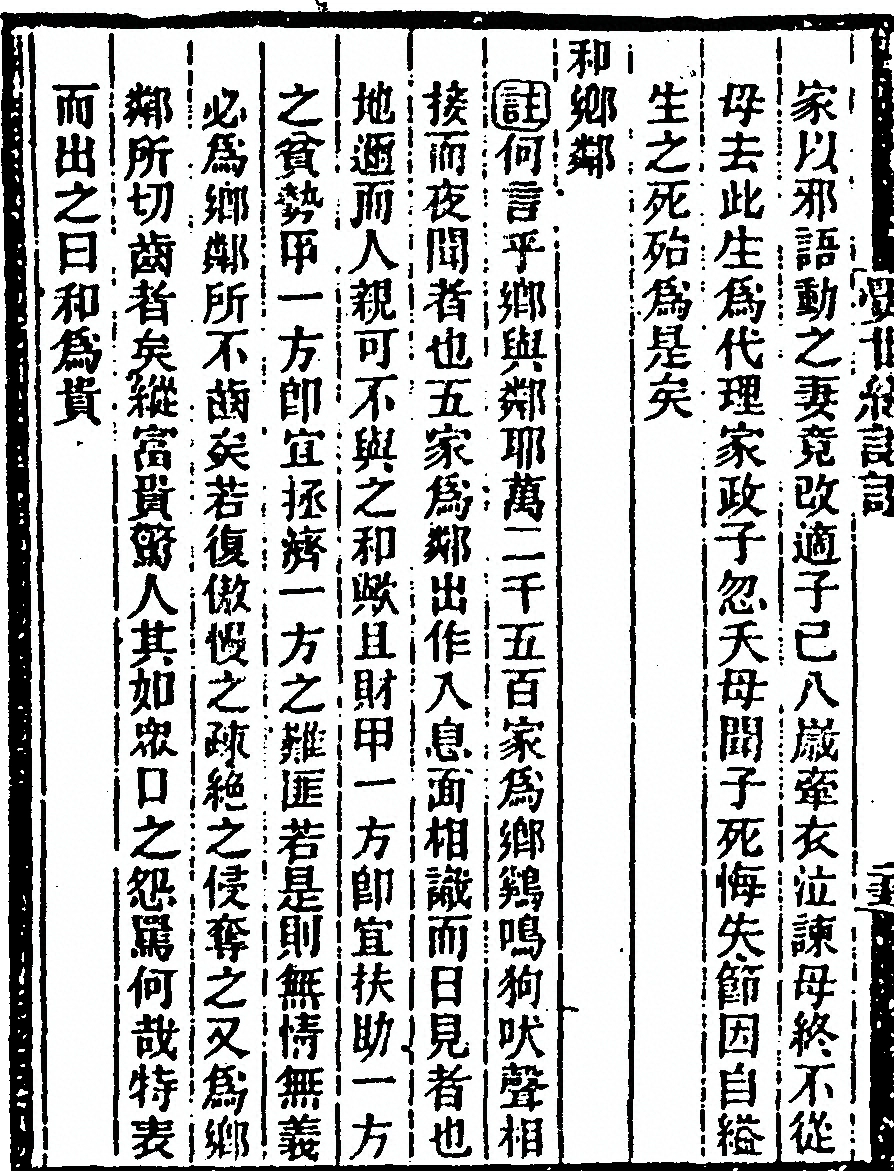 家以邪語動之妻竟改適子已八歲牽衣泣諫母終不從
母去此生為代理家政子忽夭母聞子死悔失節因自縊
生之死殆為是矣
和鄉鄰
註何言乎鄉與鄰耶萬二千五百家為鄉鷄鳴狗吠聲相
接而夜聞者也五家為鄰出作入息面相識而日見者也
地邇而人親可不與之和歟且財甲一方卽宜扶助一方
之貧勢甲一方卽宜拯濟一方之難匪若是則無情無義
必為鄉鄰所不齒矣若復傲慢之疎絶之侵奪之又為鄉
鄰所切齒者矣縱富貴驚人其如眾口之怨罵何哉特表
而出之曰和為貴